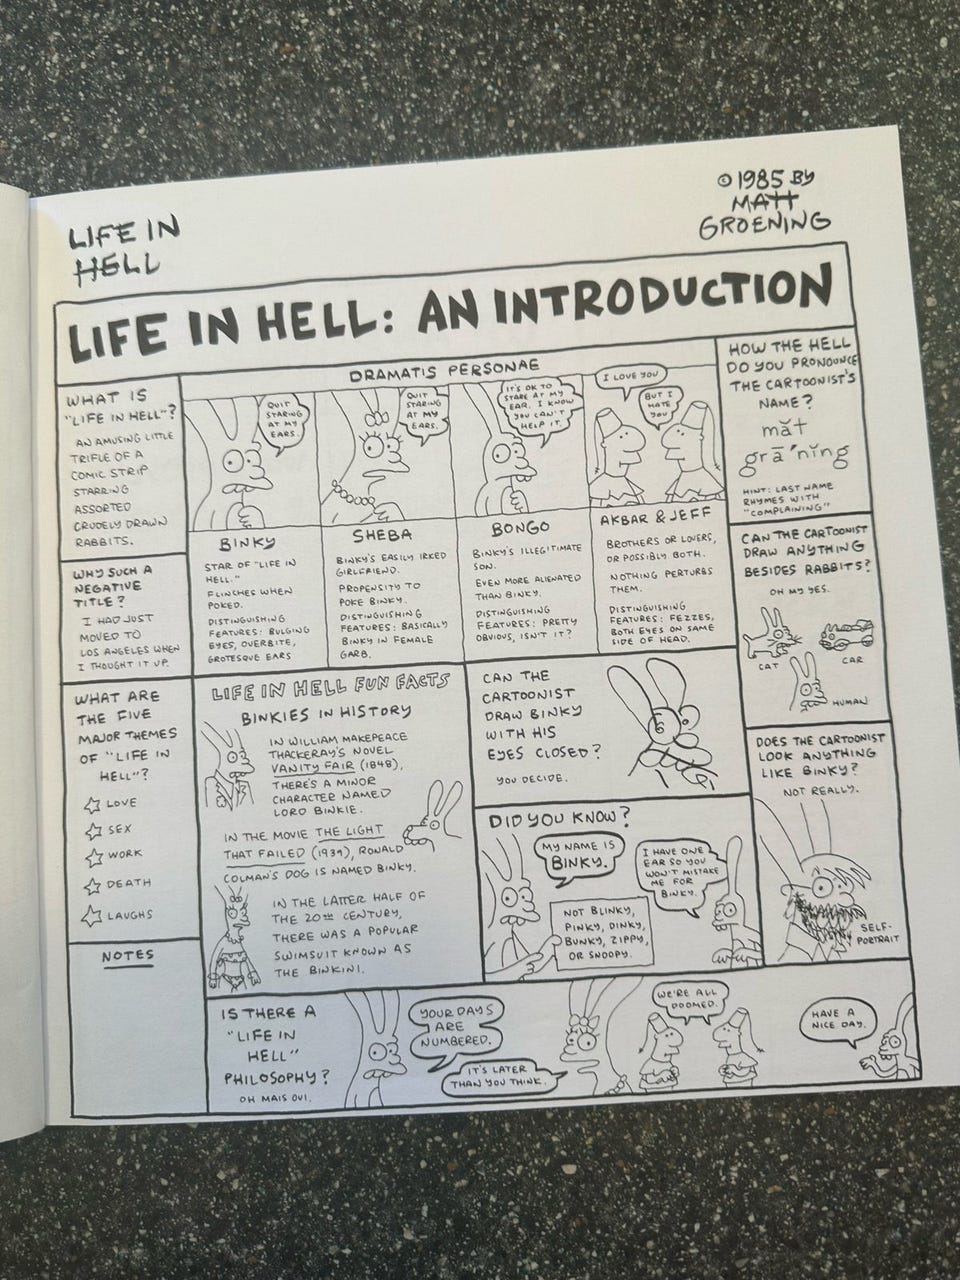 LIFE IN
HELL
© 1985 BY
MATT
GROENING
LIFE IN HELL: AN INTRODUCTION
WHAT IS
"LIFE IN HELL"?
AN AMUSING LITTLE
TRIFLE OF A
COMIC STRIP
STARRING
ASSORTED
CRUDELY DRAWN
RABBITS.
WHY SUCH A
NEGATIVE
TITLE?
I HAD JUST
MOVED TO
LOS ANGELES WHEN
I THOUGHT IT UP.
WHAT ARE
THE FIVE
MAJOR THEMES
OF "LIFE IN
HELL"?
LOVE
SEX
WORK
DEATH
LAUGHS
NOTES
DRAMATIS PERSONAE
QUIT
STARING
AT MY
EARS.
BINKY
STAR OF "LIFE IN
HELL."
FLINCHES WHEN
POKED.
DISTINGUISHING
FEATURES: BULGING
EYES, OVERBITE,
GROTESQUE EARS
QUIT
STARING
AT MY
EARS.
SHEBA
BINKY'S EASILY IRKED
GIRLFRIEND.
PROPENSITY TO
POKE BINKY.
DISTINGUISHING
FEATURES: BASICALLY
BINKY IN FEMALE
GARB.
IT'S OK TO
STARE AT MY
EAR. I KNOW
YOU CAN'T
HELP IT.
BONGO
BINKY'S ILLEGITIMATE
SON.
EVEN MORE ALIENATED
THAN BINKY.
DISTINGUISHING
FEATURES: PRETTY
OBVIOUS, ISN'T IT?
I LOVE YOU
BUT I
HATE
YOU
AKBAR & JEFF
BROTHERS OR LOVERS,
OR POSSIBLY BOTH.
NOTHING PERTURBS
THEM.
DISTINGUISHING
FEATURES: FEZZES,
BOTH EYES ON SAME
SIDE OF HEAD.
HOW THE HELL
DO YOU PRONOUNCE
THE CARTOONIST'S
NAME?
măt
grā'nĭng
HINT: LAST NAME
RHYMES WITH
"COMPLAINING"
CAN THE CARTOONIST
DRAW ANYTHING
BESIDES RABBITS?
OH MY YES.
CAT
CAR
HUMAN
LIFE IN HELL FUN FACTS
BINKIES IN HISTORY
IN WILLIAM MAKEPEACE
THACKERAY'S NOVEL
VANITY FAIR (1848),
THERE'S A MINOR
CHARACTER NAMED
LORD BINKIE.
IN THE MOVIE THE LIGHT
THAT FAILED (1939), RONALD
COLMAN'S DOG IS NAMED BINKY.
IN THE LATTER HALF OF
THE 20TH CENTURY,
THERE WAS A POPULAR
SWIMSUIT KNOWN AS
THE BINKINI.
CAN THE
CARTOONIST
DRAW BINKY
WITH HIS
EYES CLOSED?
YOU DECIDE.
DID YOU KNOW?
MY NAME IS
BINKY.
NOT BLINKY,
PINKY, DINKY,
BUNKY, ZIPPY,
OR SNOOPY.
I HAVE ONE
EAR SO YOU
WON'T MISTAKE
ME FOR
BINKY.
DOES THE CARTOONIST
LOOK ANYTHING
LIKE BINKY?
NOT REALLY.
SELF-
PORTRAIT
IS THERE A
"LIFE IN
HELL"
PHILOSOPHY?
OH MAIS OUI.
YOUR DAYS
ARE
NUMBERED.
IT'S LATER
THAN YOU THINK.
WE'RE ALL
DOOMED.
HAVE A
NICE DAY.